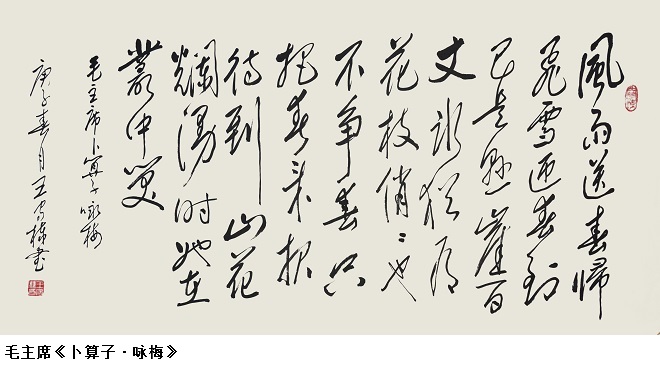 風雨送春歸
飛雪迎春到
已是懸崖百
丈冰猶有
花枝俏〻也
不争春只
把春来报
待到山花
爛漫时她在
叢中笑
毛主席卜算子咏梅
庚子春月王栋書
毛主席《卜算子·咏梅》